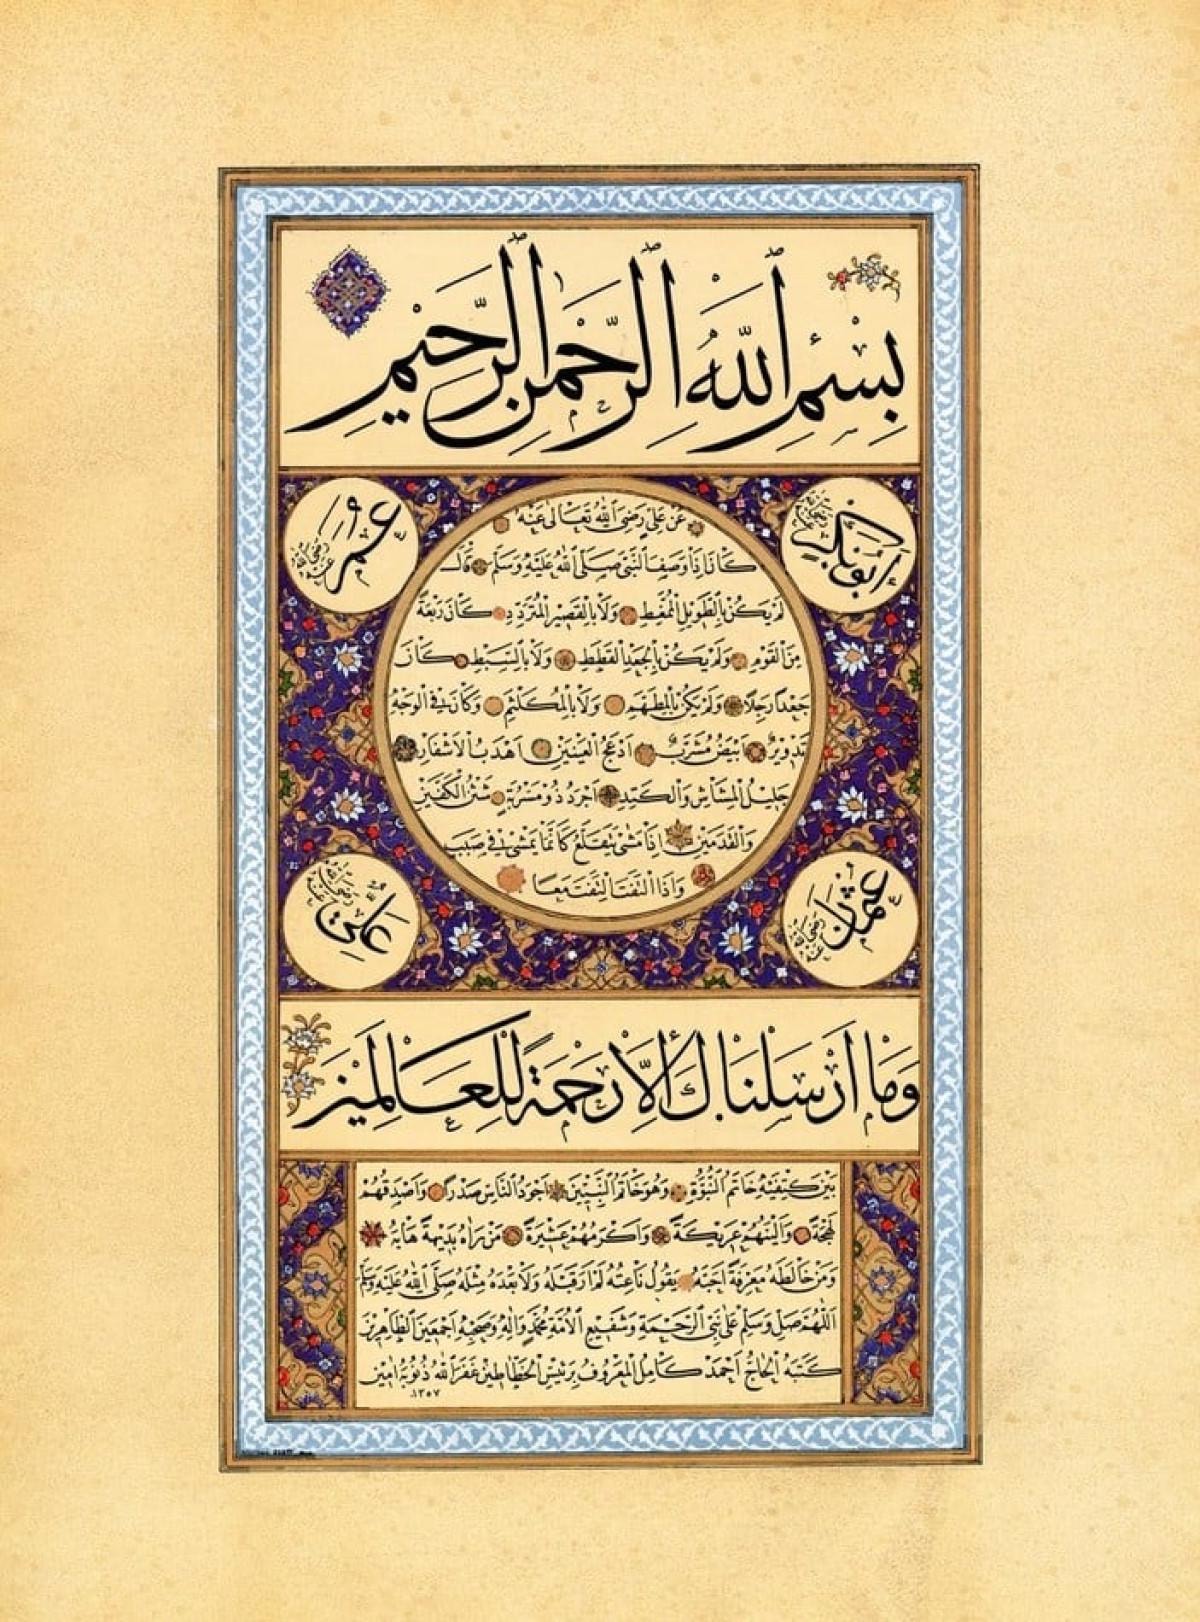 بِسْمِ ٱللَّهِ ٱلرَّحْمٰنِ ٱلرَّحِيمِ
أَبُو بَكْرٍ رضي الله عنه
عُمَرُ رضي الله عنه
عَنْ عَلِيٍّ رَضِيَ ٱللهُ تَعَالٰى عَنْهُ
كَانَ إِذَا وَصَفَ النَّبِيَّ صَلَّى ٱللهُ عَلَيْهِ وَسَلَّمَ قَالَ
لَمْ يَكُنْ بِالطَّوِيلِ الْمُمَّغِطِ وَلَا بِالْقَصِيرِ الْمُتَرَدِّدِ كَانَ رَبْعَةً
مِنَ الْقَوْمِ وَلَمْ يَكُنْ بِالْجَعْدِ الْقَطَطِ وَلَا بِالسَّبْطِ كَانَ
جَعْدًا رَجِلًا وَلَمْ يَكُنْ بِالْمُطَهَّمِ وَلَا بِالْمُكَلْثَمِ وَكَانَ فِي الْوَجْهِ
تَدْوِيرٌ أَبْيَضُ مُشْرَبٌ أَدْعَجُ الْعَيْنَيْنِ أَهْدَبُ الْأَشْفَارِ
جَلِيلُ الْمُشَاشِ وَالْكَتَدِ أَجْرَدُ ذُو مَسْرُبَةٍ شَثْنُ الْكَفَّيْنِ
وَالْقَدَمَيْنِ إِذَا مَشٰى يَتَقَلَّعُ كَأَنَّمَا يَمْشِي فِي صَبَبٍ
وَإِذَا الْتَفَتَ الْتَفَتَ مَعًا
عُثْمَانُ رضي الله عنه
عَلِيٌّ رضي الله عنه
وَمَا أَرْسَلْنَاكَ إِلَّا رَحْمَةً لِلْعَالَمِينَ
بَيْنَ كَتِفَيْهِ خَاتَمُ النُّبُوَّةِ وَهُوَ خَاتَمُ النَّبِيِّينَ أَجْوَدُ النَّاسِ صَدْرًا وَأَصْدَقُهُمْ
لَهْجَةً وَأَلْيَنُهُمْ عَرِيكَةً وَأَكْرَمُهُمْ عَشِيرَةً مَنْ رَآهُ بَدِيهَةً هَابَهُ
وَمَنْ خَالَطَهُ مَعْرِفَةً أَحَبَّهُ يَقُولُ نَاعِتُهُ لَمْ أَرَ قَبْلَهُ وَلَا بَعْدَهُ مِثْلَهُ صَلَّى ٱللهُ عَلَيْهِ وَسَلَّمَ
اَللّٰهُمَّ صَلِّ وَسَلِّمْ عَلٰى نَبِيِّ الرَّحْمَةِ وَشَفِيعِ الْأُمَّةِ مُحَمَّدٍ وَآلِهِ وَصَحْبِهِ أَجْمَعِينَ الطَّاهِرِينَ
كَتَبَهُ الْحَاجُّ أَحْمَدُ كَامِلُ الْمَعْرُوفُ بِرَئِيسِ الْخَطَّاطِينَ غَفَرَ ٱللهُ ذُنُوبَهُ آمِينَ
١٣٥٧